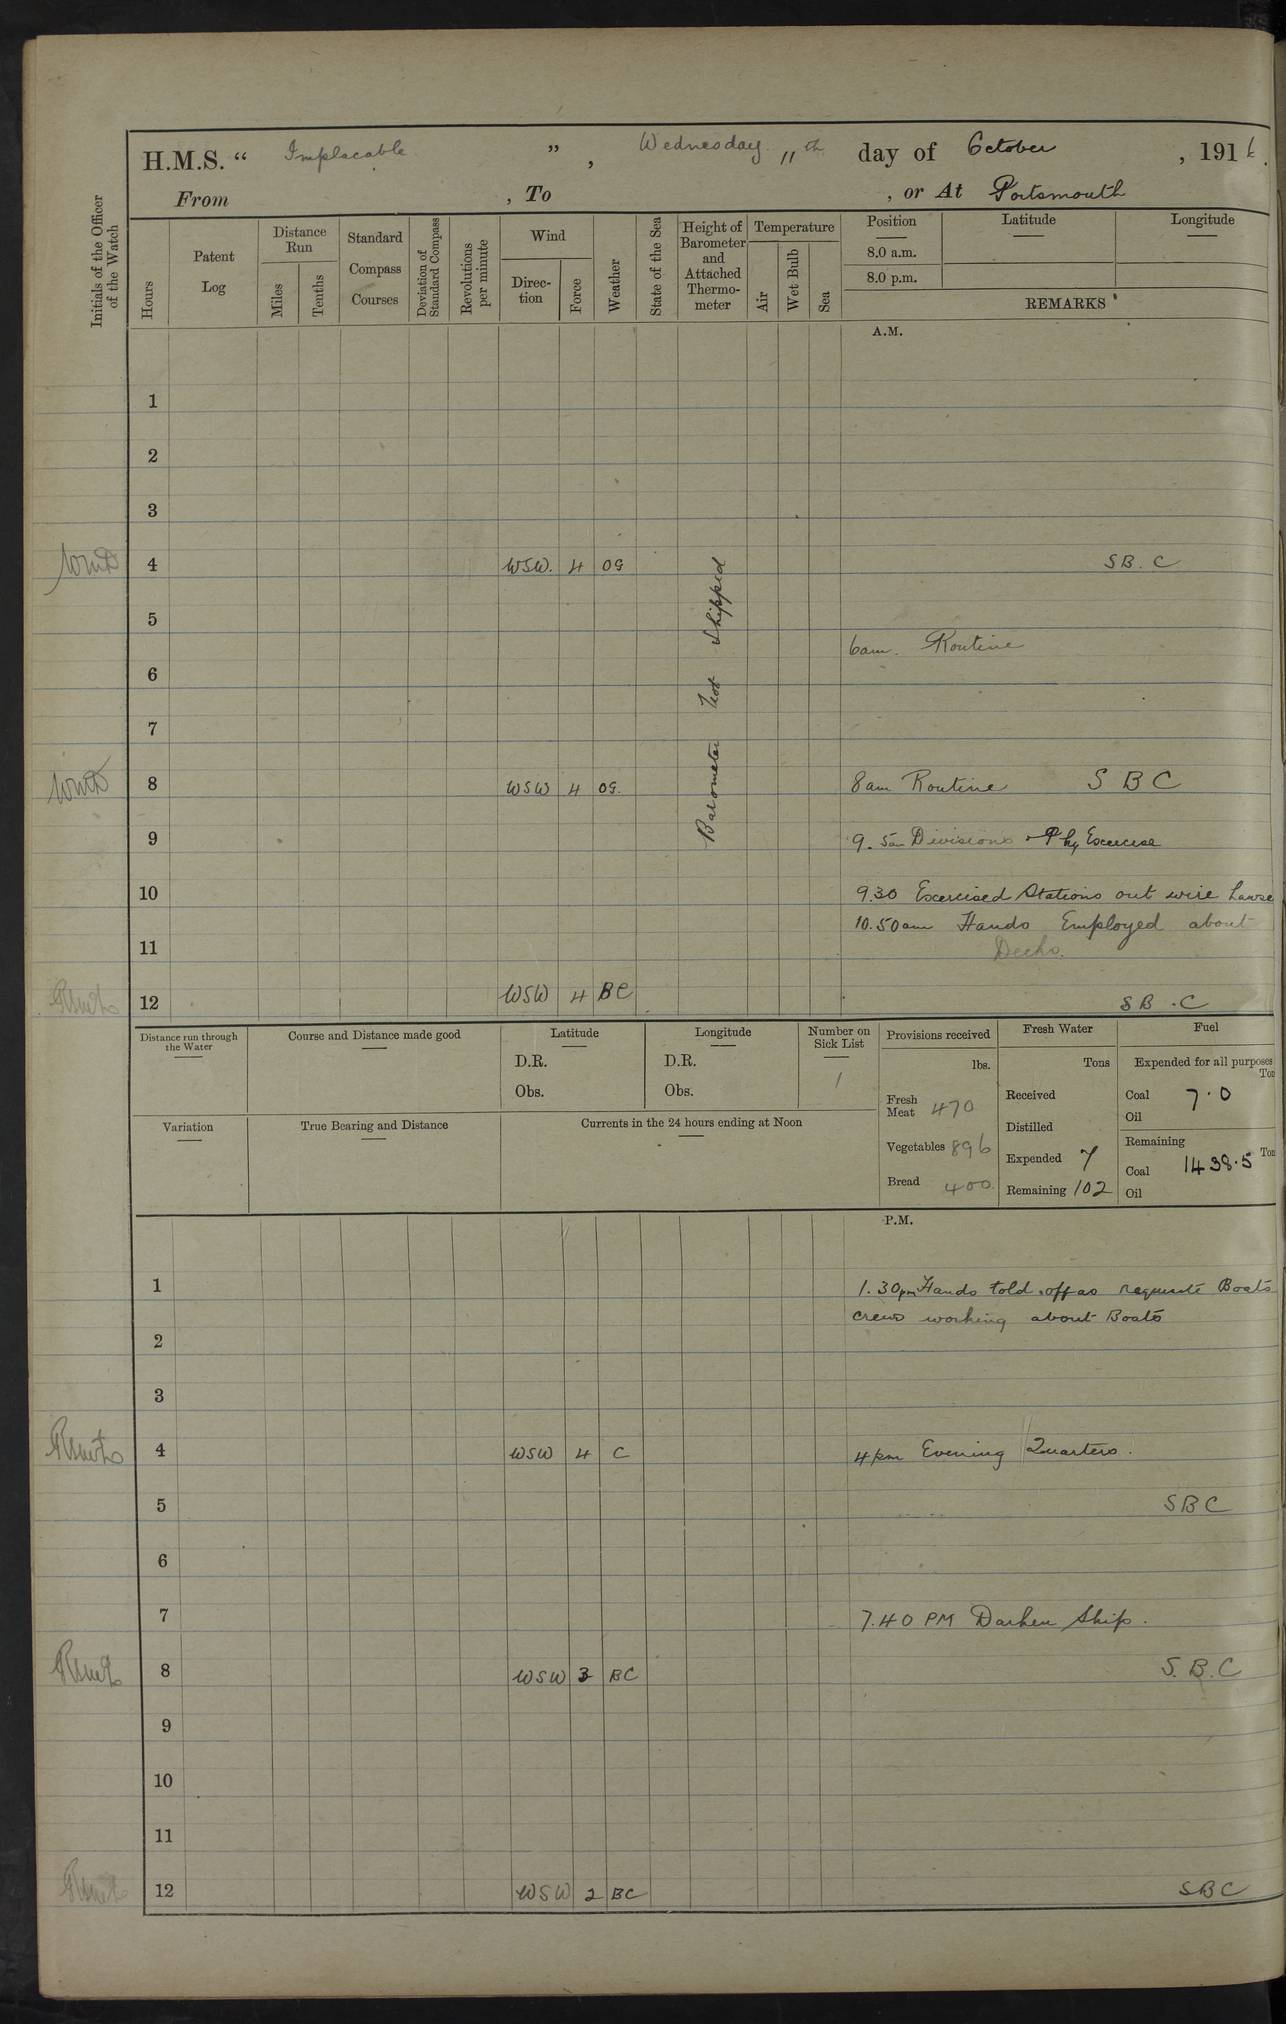 H.M.S. " Implacable " , Wednesday 11th day of October , 1916.
From , To , or At Portsmouth
Initials of the Officer of the Watch
Hours
Patent Log
Distance Run
Miles
Tenths
Standard Compass Courses
Deviation of Standard Compass
Revolutions per minute
Wind
Direction
Force
Weather
State of the Sea
Height of Barometer and Attached Thermometer
Temperature
Air
Wet Bulb
Sea
Position
8.0 a.m.
8.0 p.m.
Latitude
Longitude
REMARKS
A.M.
1
2
3
4 WSW. 4 og S B. C
5
6am. Routine
6
7
Barometer not shipped
8 WSW 4 og. 8am Routine S B C
9 9.5am Divisions & Phy Excercise
10 9.30 Excercised Stations out wire hawse
10.50am Hands Employed about
11 Decks.
12 WSW 4 BC S B . C
Distance run through the Water
Course and Distance made good
Latitude
D.R.
Obs.
Longitude
D.R.
Obs.
Number on Sick List
1
Provisions received
lbs.
Fresh Meat 470
Vegetables 896
Bread 400
Fresh Water
Tons
Received
Distilled
Expended 7
Remaining 102
Fuel
Expended for all purposes
Ton
Coal 7.0
Oil
Remaining
Ton
Coal 1438.5
Oil
Variation
True Bearing and Distance
Currents in the 24 hours ending at Noon
P.M.
1 1.30pm Hands told off as requisite Boats
crews working about Boats
2
3
4 WSW 4 C 4pm Evening Quarters.
5 S B C
6
7 7.40 PM Darken Ship.
8 WSW 3 BC S. B. C
9
10
11
12 WSW 2 BC S B C